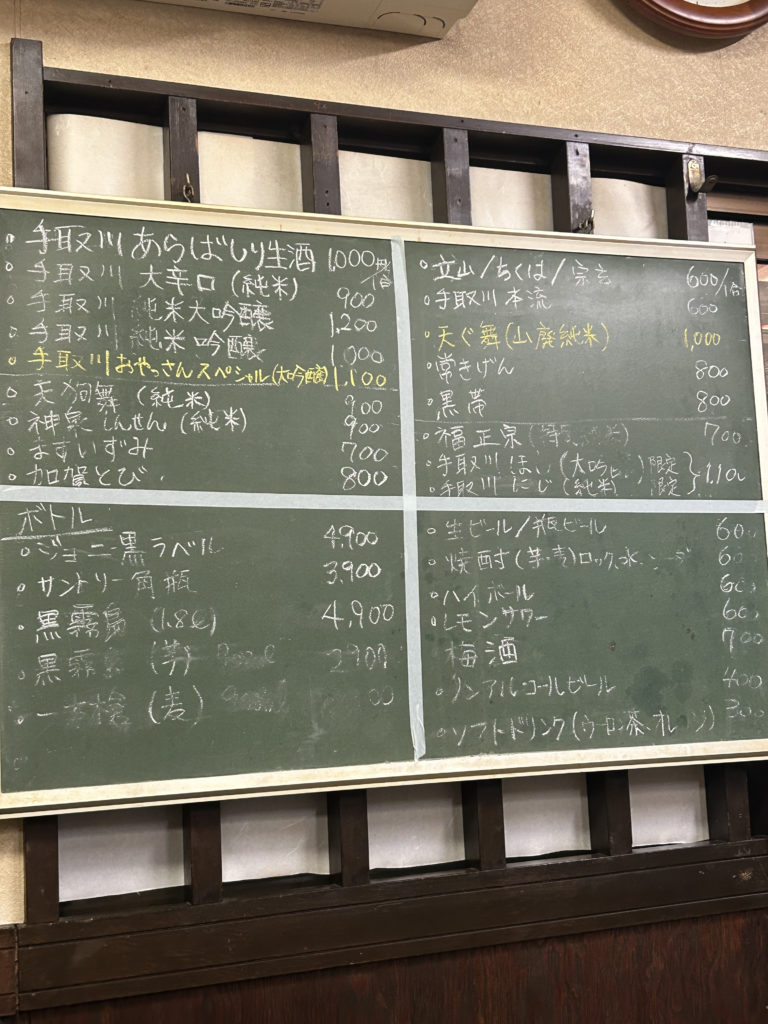 手取川 あらばしり生酒 1,000/1合
手取川 大辛口(純米) 900
手取川 純米大吟醸 1,200
手取川 純米吟醸 1,000
手取川おやっさんスペシャル(大吟醸) 1,100
天狗舞(純米) 900
神泉しんせん(純米) 900
ますいずみ 700
加賀とび 800
立山/ちくは/宗玄 600/1合
手取川 本流 600
天ぐ舞(山廃純米) 1,000
常きげん 800
黒帯 800
福正宗 純米) 700
手取川 ほし(大吟 ) 限定
手取川 にじ(純米 限定 } 1.10
ボトル
ジョニ黒ラベル 4,900
サントリー角瓶 3,900
黒霧島(1.8ℓ) 4,900
黒霧島(芋) 2900
(麦)
生ビール/瓶ビール 600
焼酎(芋・麦)ロック、水、ソーダ 60
ハイボール 600
レモンサワー 600
梅酒 700
ノンアルコールビール 400
ソフトドリンク(ウーロン茶、オレンジ) 300